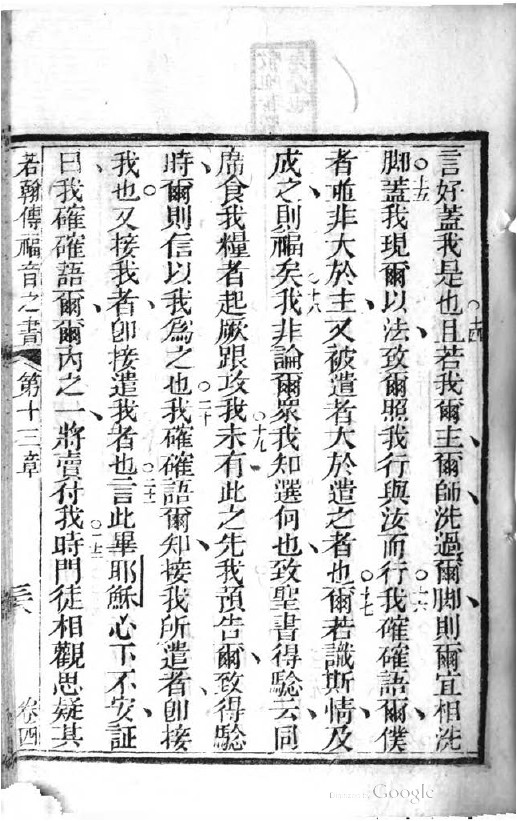 言好蓋我是也且若我爾主爾師洗過爾脚則爾宜相洗
脚蓋我現爾以法致爾照我行與汝而行我確確語爾僕
者非大於主又被遣者大於遣之者也爾若識斯情及
成之則福矣我非論爾衆我知選何也致聖書得騐云同
席食我糧者起厥跟攻我未有此之先我預告爾致得騐
時爾則信以我為之也我確確語爾知接我所遣者卽接
我也又接我者卽接遣我者也言此畢耶穌心下不安証
曰我確確語爾爾內之一將賣付我時門徒相觀思疑其
若翰傳福音之書 第十三章 卷四
十四
十五
十六
十七
十八
十九
二十
二十一
Google